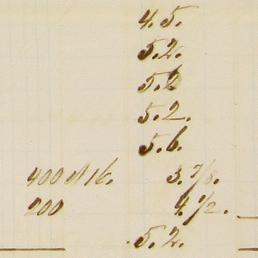 4.5.
5.2.
5.2
5.2.
5.6.
400 A 16. 3.7/8.
200 4 1/2.
5.2.